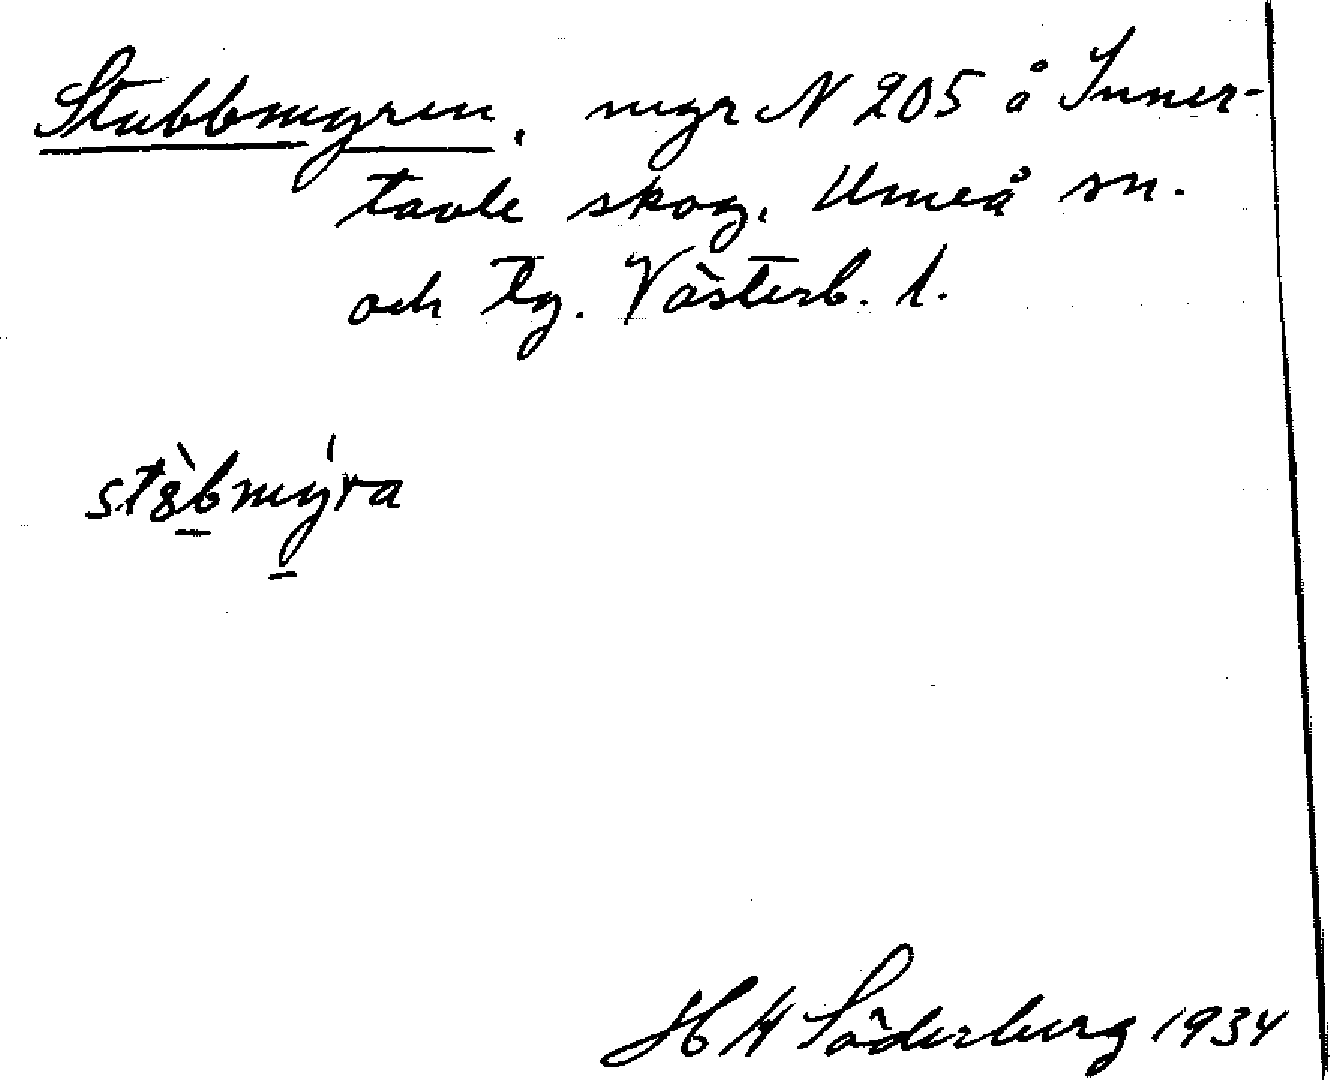 Stubbmyren, myr N 205 å Inner-
tavle skog, Umeå sn.
och tg. Västerb. l.
stȣ̀bmýra
H H Söderberg 1934